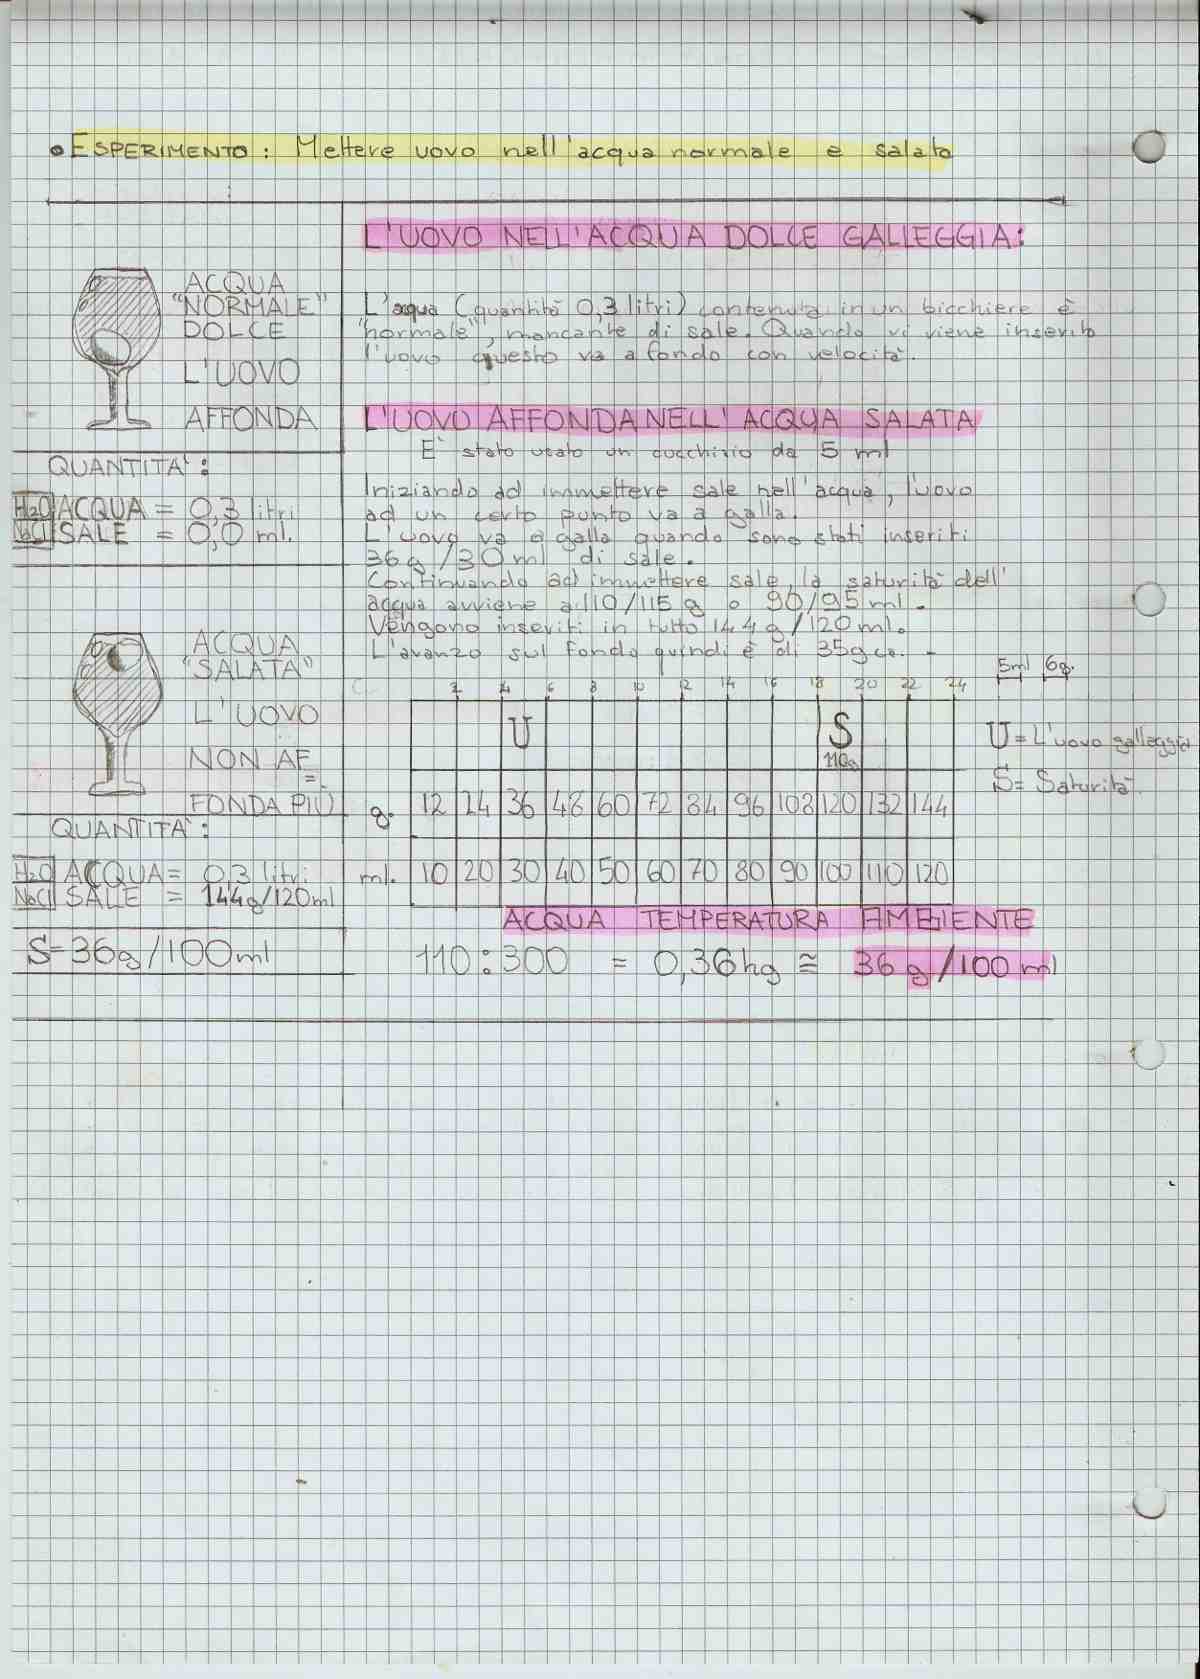 • ESPERIMENTO: Mettere uovo nell'acqua normale e salato
ACQUA
"NORMALE"
DOLCE
L'UOVO
AFFONDA
QUANTITA':
H2O ACQUA = 0,3 litri
NaCl SALE = 0,0 ml.
ACQUA
"SALATA"
L'UOVO
NON AF=
FONDA PIÙ
QUANTITA':
H2O ACQUA= 0,3 litri
NaCl SALE = 144g/120ml
S=36g/100ml
L'UOVO NELL'ACQUA DOLCE GALLEGGIA:
L'acqua (quantità 0,3 litri) contenuta in un bicchiere è
"normale", mancante di sale. Quando vi viene inserito
l'uovo questo va a fondo con velocità.
L'UOVO AFFONDA NELL'ACQUA SALATA
E' stato usato un cucchiaio da 5 ml
Iniziando ad immettere sale nell'acqua, l'uovo
ad un certo punto va a galla.
L'uovo va a galla quando sono stati inseriti
36g/30ml di sale.
Continuando ad immettere sale, la saturità dell'
acqua avviene a 110/115 g o 90/95 ml.
Vengono inseriti in tutto 144g/120ml.
L'avanzo sul fondo quindi è di 35g ca. -
5ml 6g.
2 4 6 8 10 12 14 16 18 20 22 24
U S
110g
U = L'uovo galleggia
S = Saturità
g. 12 24 36 48 60 72 84 96 108 120 132 144
ml. 10 20 30 40 50 60 70 80 90 100 110 120
ACQUA TEMPERATURA AMBIENTE
110:300 = 0,36hg ≅ 36 g/100 ml